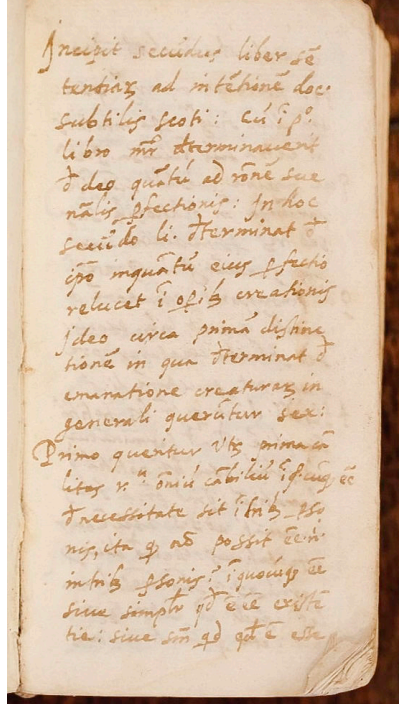 Incipit secūdus liber sē
tentiaꝝ ad intētionē doc.
subtilis scoti: Cū ī pº.
libro mr̄ đterminauerit
đ deo quātū ad rōnē sue
nālis ꝑfectionis: In hoc
secūdo li. đterminat đ
ip̄o inquātū eius ꝑfectio
relucet ī oꝑibꝫ creationis
Ideo circa primā distinc
tionē in qua đterminat đ
emanatione creaturaꝝ in
generali querūtur sex:
Primo queritur Vtꝝ prima cā
litas r. oīniū cābiliū ī q̇.cūqꝫ ēē
đ necessitate sit ī tribꝫ ꝑso
nis, ita ꝙ nō possit ēē .n.
in tribꝫ ꝑsonis? ī quocūqꝫ ēē
siue simplr̄ qđ ē ēē existē
tie: siue sm̄ qđ qđ ē esse